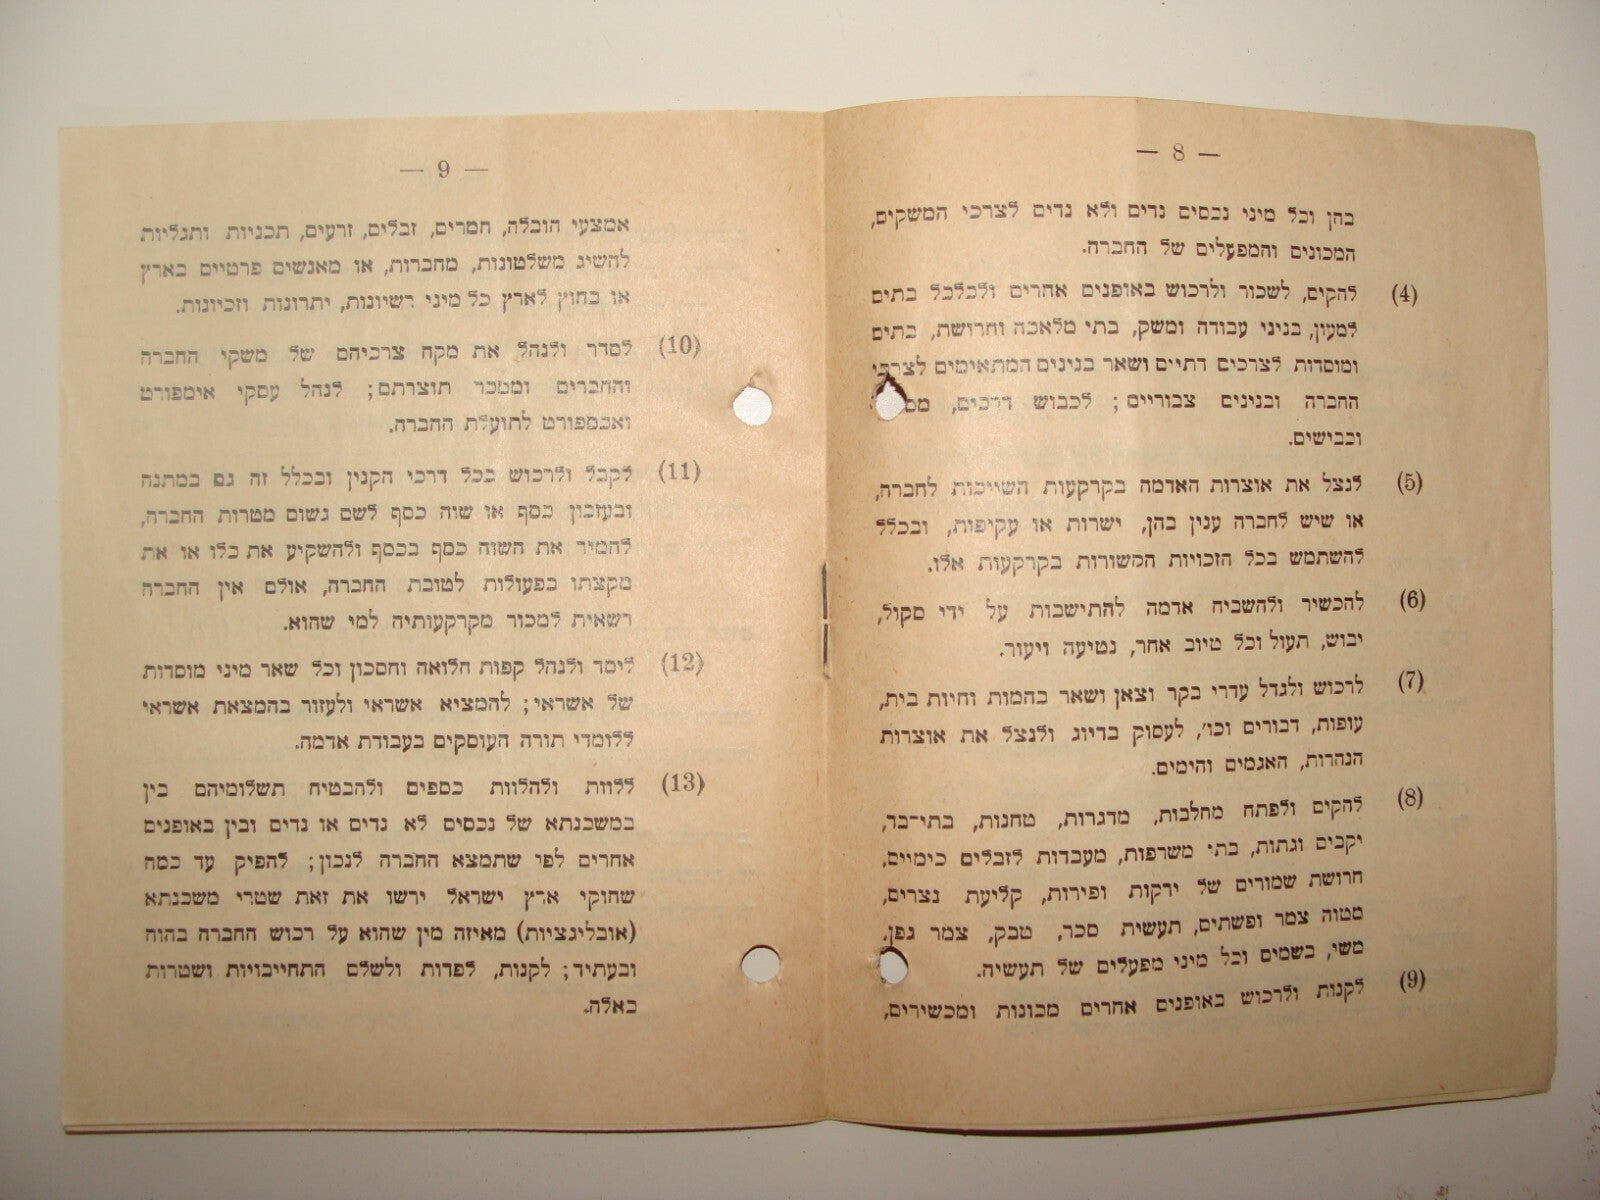 — 8 —
בהן וכל מיני נכסים נדים ולא נדים לצרכי המשקים,
המכונים והמפעלים של החברה.
(4) להקים, לשכור ולרכוש באופנים אחרים ולכלכל בתים
למעון, בניני עבודה ומשק, בתי מלאכה וחרושת, בתים
ומוסדות לצרכים דתיים ושאר בנינים המתאימים לצרכי
החברה ובנינים צבוריים; לכבוש דרכים,
וכבישים.
(5) לנצל את אוצרות האדמה בקרקעות השייכות לחברה,
או שיש לחברה ענין בהן, ישרות או עקיפות, ובכלל
להשתמש בכל הזכויות הקשורות בקרקעות אלו.
(6) להכשיר ולהשביח אדמה להתישבות על ידי סקול,
יבוש, תעול וכל טיוב אחר, נטיעה ויעור.
(7) לרכוש ולגדל עדרי בקר וצאן ושאר בהמות וחיות בית,
עופות, דבורים וכו', לעסוק בדיוג ולנצל את אוצרות
הנהרות, האגמים והימים.
(8) להקים ולפתח מחלבות, מדגרות, טחנות, בתי־בד,
יקבים וגתות, בתי משרפות, מעבדות לזבלים כימיים,
חרושת שמורים של ירקות ופירות, קליעת נצרים,
מטוה צמר ופשתים, תעשית סכר, טבק, צמר גפן,
משי, בשמים וכל מיני מפעלים של תעשיה.
(9) לקנות ולרכוש באופנים אחרים מכונות ומכשירים,
— 9 —
אמצעי הובלה, חמרים, זבלים, זרעים, תכניות ותגליות
להשיג משלטונות, מחברות, או מאנשים פרטיים בארץ
או בחוץ לארץ כל מיני רשיונות, יתרונות וזכיונות.
(10) לסדר ולנהל את מקח צרכיהם של משקי החברה
והחברים וממכר תוצרתם; לנהל עסקי אימפורט
ואכספורט לתועלת החברה.
(11) לקבל ולרכוש בכל דרכי הקנין ובכלל זה גם במתנה
ובעזבון כסף או שוה כסף לשם גשום מטרות החברה,
להמיר את השוה כסף בכסף ולהשקיע את כלו או את
מקצתו בפעולות לטובת החברה, אולם אין החברה
רשאית למכור מקרקעותיה למי שהוא.
(12) ליסד ולנהל קפות הלואה וחסכון וכל שאר מיני מוסדות
של אשראי; להמציא אשראי ולעזור בהמצאת אשראי
ללומדי תורה העוסקים בעבודת אדמה.
(13) ללוות ולהלוות כספים ולהבטיח תשלומיהם בין
במשכנתא של נכסים לא נדים או נדים ובין באופנים
אחרים לפי שתמצא החברה לנכון; להפיק עד כמה
שחוקי ארץ ישראל ירשו את זאת שטרי משכנתא
(אובליגציות) מאיזה מין שהוא על רכוש החברה בהוה
ובעתיד; לקנות, לפדות ולשלם התחייבויות ושטרות
כאלה.